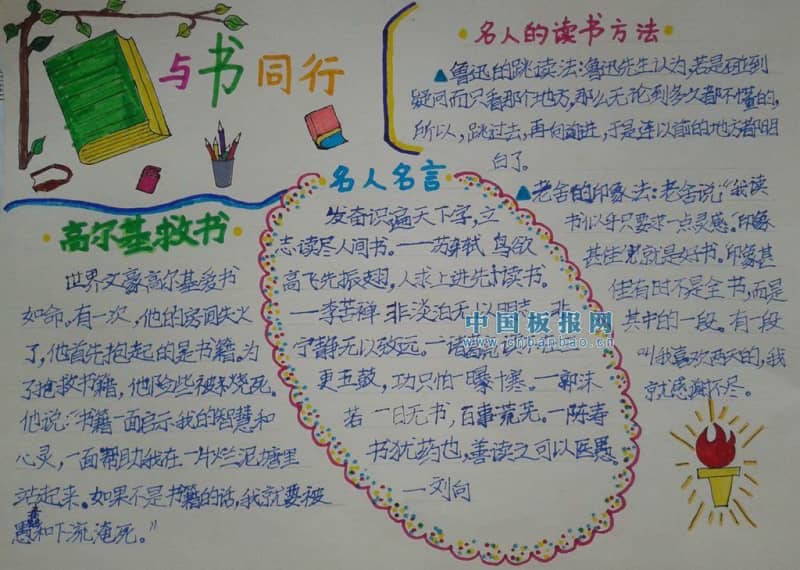 与书同行
高尔基救书
世界文豪高尔基爱书
如命。有一次，他的房间失火
了，他首先抱起的是书籍。为
了抢救书籍，他险些被烧死。
他说：“书籍一面启示我的智慧和
心灵，一面帮助我在一片烂泥塘里
站起来。如果不是书籍的话，我就要被
愚蠢和下流淹死。”
名人名言
发奋识遍天下字，立
志读尽人间书。——苏轼 鸟欲
高飞先振翅，人求上进先读书。
—李苦禅 非淡泊无以明志，非
宁静无以致远。—诸葛亮 读不
更五鼓，功只怕一曝十寒。—郭沫
若 一日无书，百事荒芜。—陈寿
书犹药也，善读之可以医愚。
—刘向
名人的读书方法
▲鲁迅的跳读法：鲁迅先生认为，若是碰到
疑问而只看那个地方，那么无论到多久都不懂的，
所以，跳过去，再向前进，于是连以前的地方都明
白了。
▲老舍的印象法：老舍说“我读
书似乎只要求一点灵感。印象
甚佳便就是好书。印象甚
佳有时不是全书，而是
其中的一段。有一段
叫我喜欢两天的，我
就感谢不尽。
中国板报网
www.cnbanbao.cn